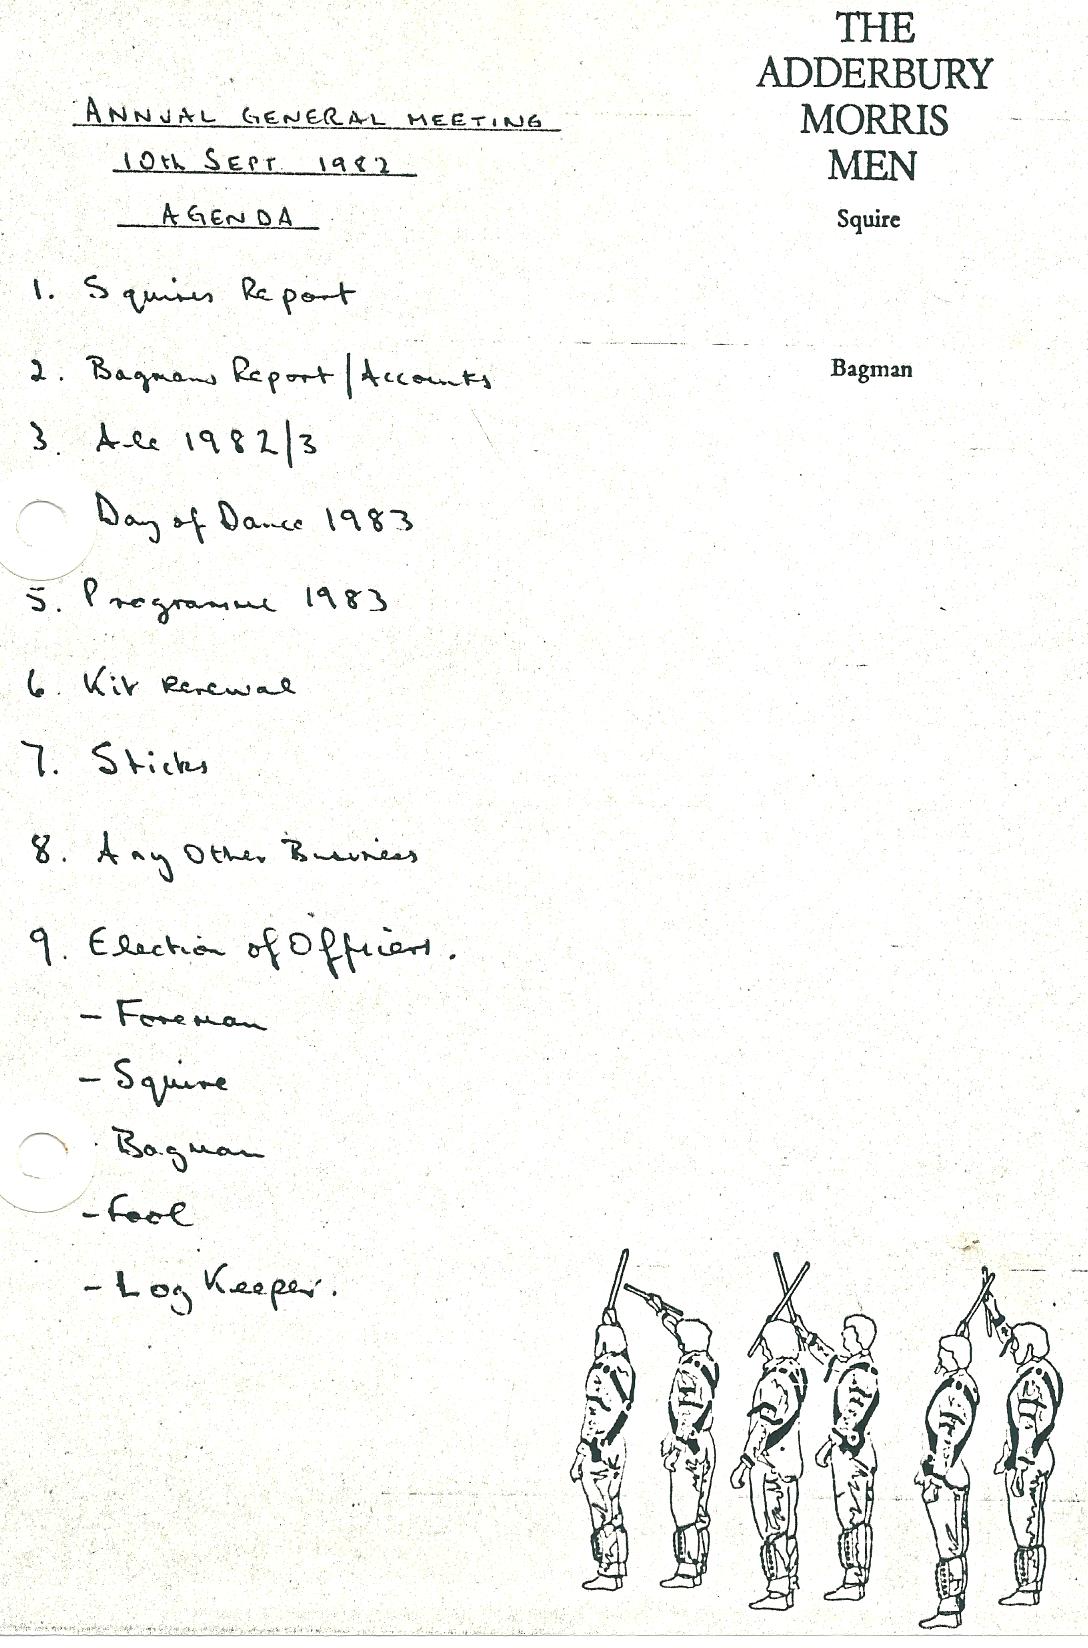 THE
ADDERBURY
MORRIS
MEN
Squire
Bagman
ANNUAL GENERAL MEETING
10th SEPT. 1982
AGENDA
1. Squires Report
2. Bagmans Report/Accounts
3. Ale 1982/3
Day of Dance 1983
5. Programme 1983
6. Kit Renewal
7. Sticks
8. Any Other Business
9. Election of Officers.
- Foreman
- Squire
Bagman
- Fool
- Log Keeper.